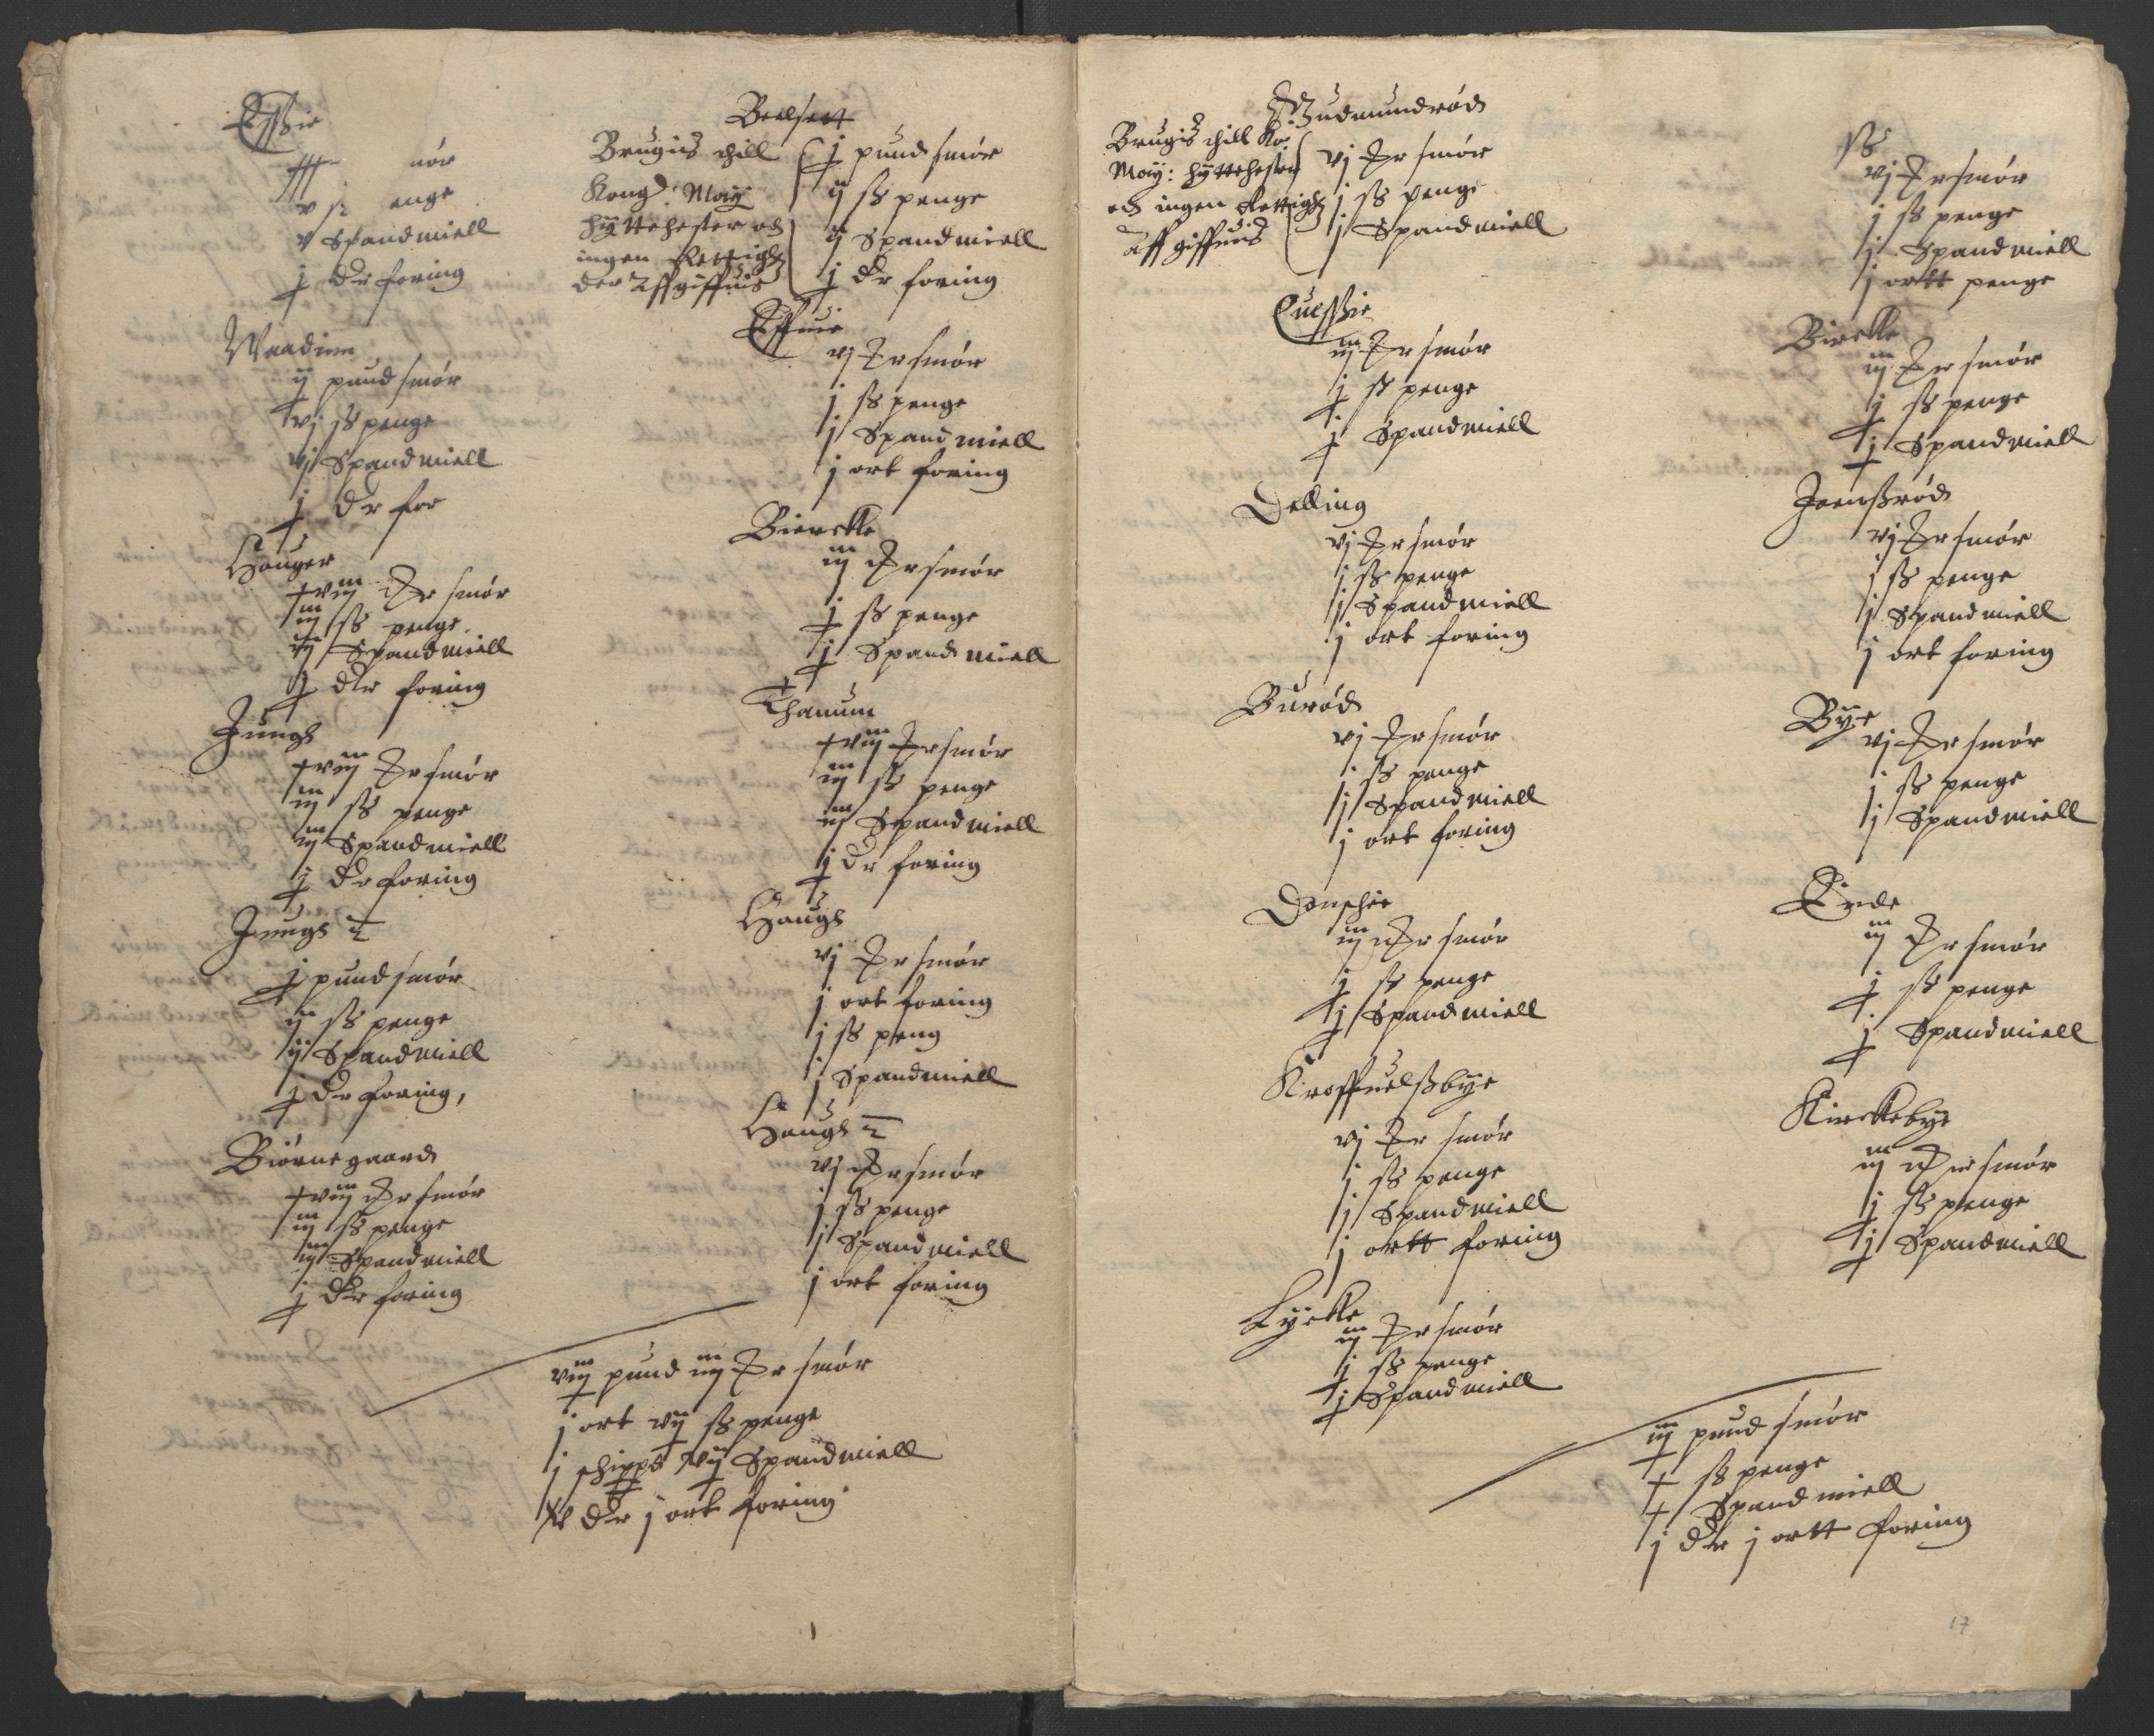 Waadum
ij pund smör
vj ss penge
vj Spandmiell
j dr for
Hauger
xviij mr smör
iij ss penge
Spandmiell
j dr foring
Jungh
xviij mr smör
iij ss penge
iij Spandmiell
j dr foring
Jungh
j pund smör
ij ss penge
ij Spandmiell
j dr foring,
Biörnegaard
xviij mr smör
iij ss penge
iij Spandmiell
j dr foring
Brugiis thill
Kong: May
hyttehester och
ingen Rettighed
der Affgiffuis
j pund smör
ij ss penge
ij Spandmiell
j dr foring
vj mr smör
j ss penge
j Spandmiell
j ort foring
Bierckke
iij mr smör
j ss penge
j Spandmiell
Thanum
xviij mr smör
iij ss penge
iij Spandmiell
j dr foring
Haugh
vj mr smör
j ort foring
j ss peng
j Spandmiell
Haugh
vj mr smör
j ss penge
j Spandmiell
j ort foring
viij pund iiij mr smör
j ort vij ss penge
j schippd Spandmiell
dr j ort foring
Gudmundröd
Brugis thill Ko:
May: hyttehester
och ingen Rettighed
aff giffuis
vj mr smör
j ss penge
j Spandmiell
iij mr smör
j ss penge
j Spandmiell
Delling
vj mr smör
j ss penge
j Spandmiell
j ort foring
Buröd
vj mr smör
j ss penge
j Spandmiell
j ort foring
iij mr smör
j ss penge
j Spandmiell
Kroffuelssbye
vj mr smör
j ss penge
j Spandmiell
j ortt foring
Lyckke
iij mr smör
j ss penge
j Spandmiell
vj mr smör
j ss penge
j Spandmiell
j ortt penge
Bierckke
iij mr smör
j ss penge
j Spandmiell
Joenssröd
vj mr smör
j ss penge
j Spandmiell
j ort foring
Bye
vj mr smör
j ss penge
j Spandmiell
iij mr smör
j ss penge
j Spandmiell
Kirckebye
iij mr smör
j ss penge
j Spandmiell
iij pund smör
x ss penge
x Spandmiell
j dr j ortt foring
17